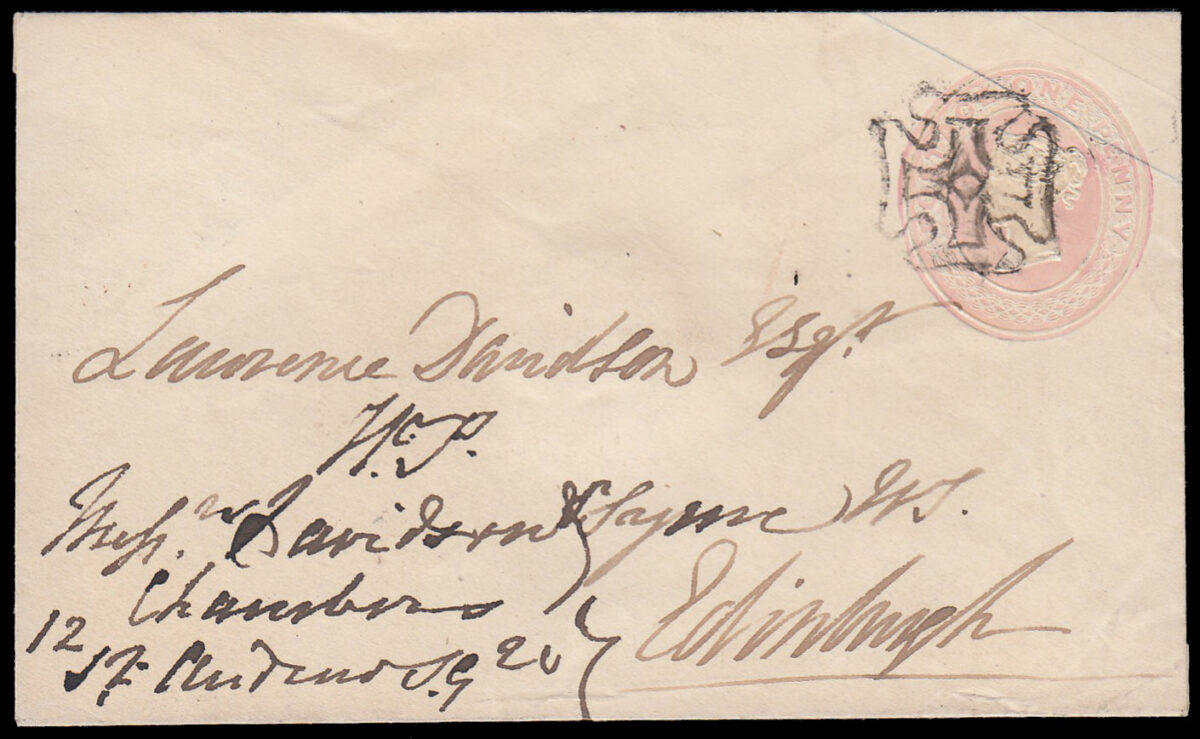 ONE PENNY
Lawrence Davidson Esqr.
Messrs. Davidson & Syme WS.
Chambers
12 St. Andrew Sq
Edinburgh